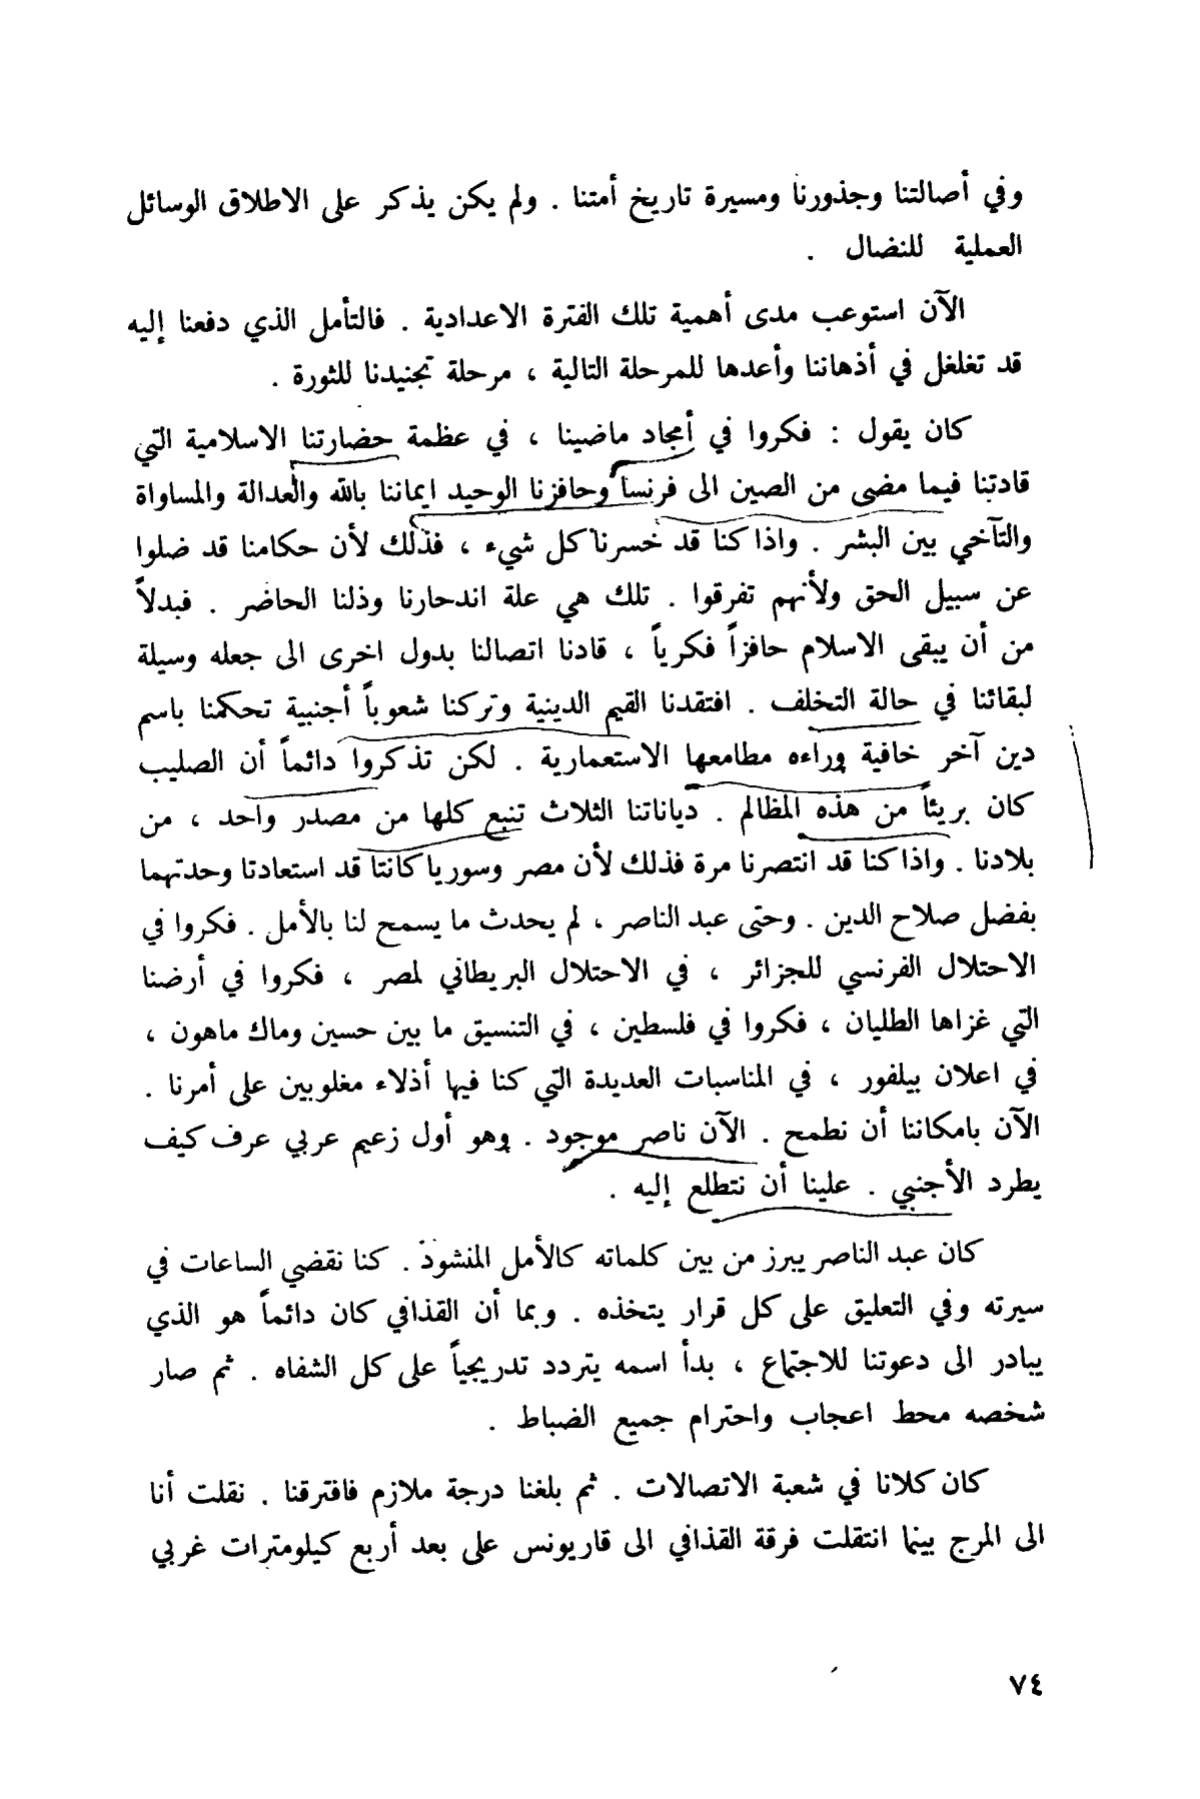 وفي أصالتنا وجذورنا ومسيرة تاريخ أمتنا . ولم يكن يذكر على الاطلاق الوسائل
العملية للنضال .
الآن استوعب مدى أهمية تلك الفترة الاعدادية . فالتأمل الذي دفعنا إليه
قد تغلغل في أذهاننا وأعدها للمرحلة التالية ، مرحلة تجنيدنا للثورة .
كان يقول : فكروا في أمجاد ماضينا ، في عظمة حضارتنا الاسلامية التي
قادتنا فيما مضى من الصين الى فرنسا وحافزنا الوحيد ايماننا بالله والعدالة والمساواة
والتآخي بين البشر . واذا كنا قد خسرنا كل شيء ، فذلك لأن حكامنا قد ضلوا
عن سبيل الحق ولأنهم تفرقوا . تلك هي علة اندحارنا وذلنا الحاضر . فبدلاً
من أن يبقى الاسلام حافزاً فكرياً ، قادنا اتصالنا بدول اخرى الى جعله وسيلة
لبقائنا في حالة التخلف . افتقدنا القيم الدينية وتركنا شعوباً أجنبية تحكمنا باسم
دين آخر خافية وراءه مطامعها الاستعمارية . لكن تذكروا دائماً أن الصليب
كان بريئاً من هذه المظالم . دياناتنا الثلاث تنبع كلها من مصدر واحد ، من
بلادنا . واذا كنا قد انتصرنا مرة فذلك لأن مصر وسوريا كانتا قد استعادتا وحدتهما
بفضل صلاح الدين . وحتى عبد الناصر ، لم يحدث ما يسمح لنا بالأمل . فكروا في
الاحتلال الفرنسي للجزائر ، في الاحتلال البريطاني لمصر ، فكروا في أرضنا
التي غزاها الطليان ، فكروا في فلسطين ، في التنسيق ما بين حسين وماك ماهون ،
في اعلان بيلفور ، في المناسبات العديدة التي كنا فيها أذلاء مغلوبين على أمرنا .
الآن بامكاننا أن نطمح . الآن ناصر موجود . وهو أول زعيم عربي عرف كيف
يطرد الأجنبي . علينا أن نتطلع إليه .
كان عبد الناصر يبرز من بين كلماته كالأمل المنشود . كنا نقضي الساعات في
سيرته وفي التعليق على كل قرار يتخذه . وبما أن القذافي كان دائماً هو الذي
يبادر الى دعوتنا للاجتماع ، بدأ اسمه يتردد تدريجياً على كل الشفاه . ثم صار
شخصه محط اعجاب واحترام جميع الضباط .
كان كلانا في شعبة الاتصالات . ثم بلغنا درجة ملازم فافترقنا . نقلت أنا
الى المرج بينما انتقلت فرقة القذافي الى قاريونس على بعد أربع كيلومترات غربي
٧٤